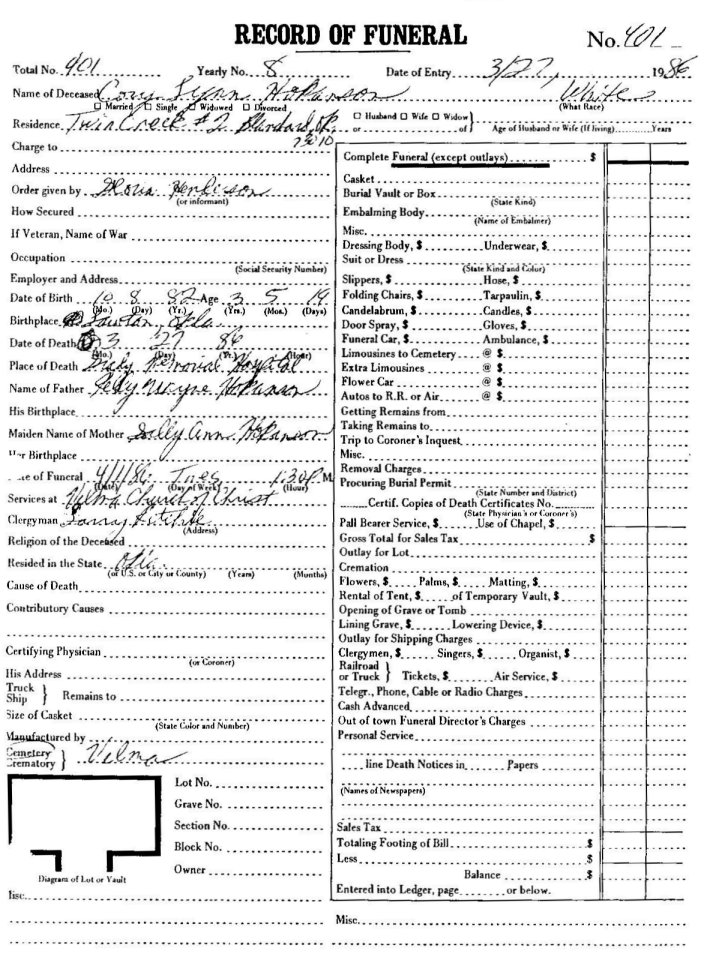 RECORD OF FUNERAL No. 401
Total No. 901 Yearly No. 8 Date of Entry 3/27, 1986
Name of Deceased Lynn White
☐ Married ☐ Single ☐ Widowed ☐ Divorced (What Race)
Residence Twin Creek #2 ☐ Husband ☐ Wife ☐ Widow
or of } Age of Husband or Wife (If living) Years
Charge to
Address
Order given by
(or informant)
How Secured
If Veteran, Name of War
Occupation
(Social Security Number)
Employer and Address
Date of Birth 10 8 82 Age 3 5 19
(Mo.) (Day) (Yr.) (Yrs.) (Mos.) (Days)
Birthplace Lawton, Okla
Date of Death 3 27 86
(Mo.) (Day) (Yr.) (Hour)
Place of Death Memorial Hospital
Name of Father Wayne
His Birthplace
Maiden Name of Mother Sally Ann
Her Birthplace
te of Funeral 4/1/86 Tues 1:30 P M
(Date) (Day of Week) (Hour)
Services at Velma Church of Christ
Clergyman Larry
(Address)
Religion of the Deceased
Resided in the State
(or U.S. or City or County) (Years) (Months)
Cause of Death
Contributory Causes
Certifying Physician
(or Coroner)
His Address
Truck
Ship } Remains to
Size of Casket
(State Color and Number)
Manufactured by
Cemetery
Crematory } Velma
Lot No.
Grave No.
Section No.
Block No.
Owner
Diagram of Lot or Vault
isc.
Complete Funeral (except outlays) $
Casket
Burial Vault or Box
(State Kind)
Embalming Body
(Name of Embalmer)
Misc.
Dressing Body, $ Underwear, $
Suit or Dress
(State Kind and Color)
Slippers, $ Hose, $
Folding Chairs, $ Tarpaulin, $
Candelabrum, $ Candles, $
Door Spray, $ Gloves, $
Funeral Car, $ Ambulance, $
Limousines to Cemetery @ $
Extra Limousines @ $
Flower Car @ $
Autos to R.R. or Air @ $
Getting Remains from
Taking Remains to
Trip to Coroner's Inquest
Misc.
Removal Charges
Procuring Burial Permit
(State Number and District)
Certif. Copies of Death Certificates No.
(State Physician's or Coroner's)
Pall Bearer Service, $ Use of Chapel, $
Gross Total for Sales Tax $
Outlay for Lot
Cremation
Flowers, $ Palms, $ Matting, $
Rental of Tent, $ of Temporary Vault, $
Opening of Grave or Tomb
Lining Grave, $ Lowering Device, $
Outlay for Shipping Charges
Clergymen, $ Singers, $ Organist, $
Railroad
or Truck } Tickets, $ Air Service, $
Telegr., Phone, Cable or Radio Charges
Cash Advanced
Out of town Funeral Director's Charges
Personal Service
line Death Notices in Papers
(Names of Newspapers)
Sales Tax
Totaling Footing of Bill $
Less $
Balance $
Entered into Ledger, page or below.
Misc.